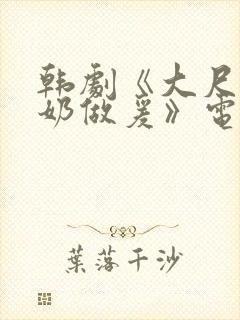 韩剧《大尺
奶做爰》电
葉落千沙